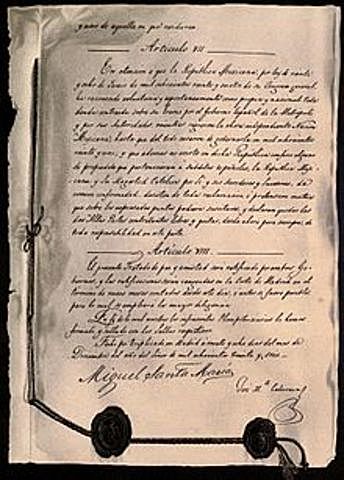 y uno de aquella en que residieren
Artículo VII
En atencion a que la República Mexicana, por ley de veinte
y ocho de Junio de mil ochocientos veinte y cuatro de su Congreso general,
ha reconocido voluntaria y espontaneamente como propia y nacional toda
deuda contraida sobre su Erario por el Gobierno español de la Metropoli
y por sus autoridades mientras rigieron la ahora independiente Nacion
Mexicana, hasta que del todo cesaron de gobernarla en mil ochocientos
veinte y uno; y que ademas no existe en dicha República confisco alguno
de propiedades que pertenecieran a subditos españoles, la República Mexi-
cana, y Su Magestad Catolica por sí y sus herederos y sucesores, de
comun conformidad desisten de toda reclamacion o pretension mutua
que sobre los expresados puntos pudiera suscitarse, y declaran quedar las
dos Altas Partes contratantes libres y quitas, desde ahora para siempre, de
toda responsabilidad en esta parte.
Artículo VIII
El presente Tratado de paz y amistad será ratificado por ambos Go-
biernos, y las ratificaciones serán cangeadas en la Corte de Madrid en el
termino de nueve meses contados desde este dia, o antes si fuere posible,
para lo cual se emplearà la mayor diligencia.
En fe de lo cual nosotros los infrascritos Plenipotenciarios lo hemos
firmado y sellado con los Sellos respectivos.
Fecho por triplicado en Madrid a veinte y ocho dias del mes de
Diciembre del año del Señor de mil ochocientos treinta y seis.
Miguel Santa Maria
Jose M.ª Calatrava